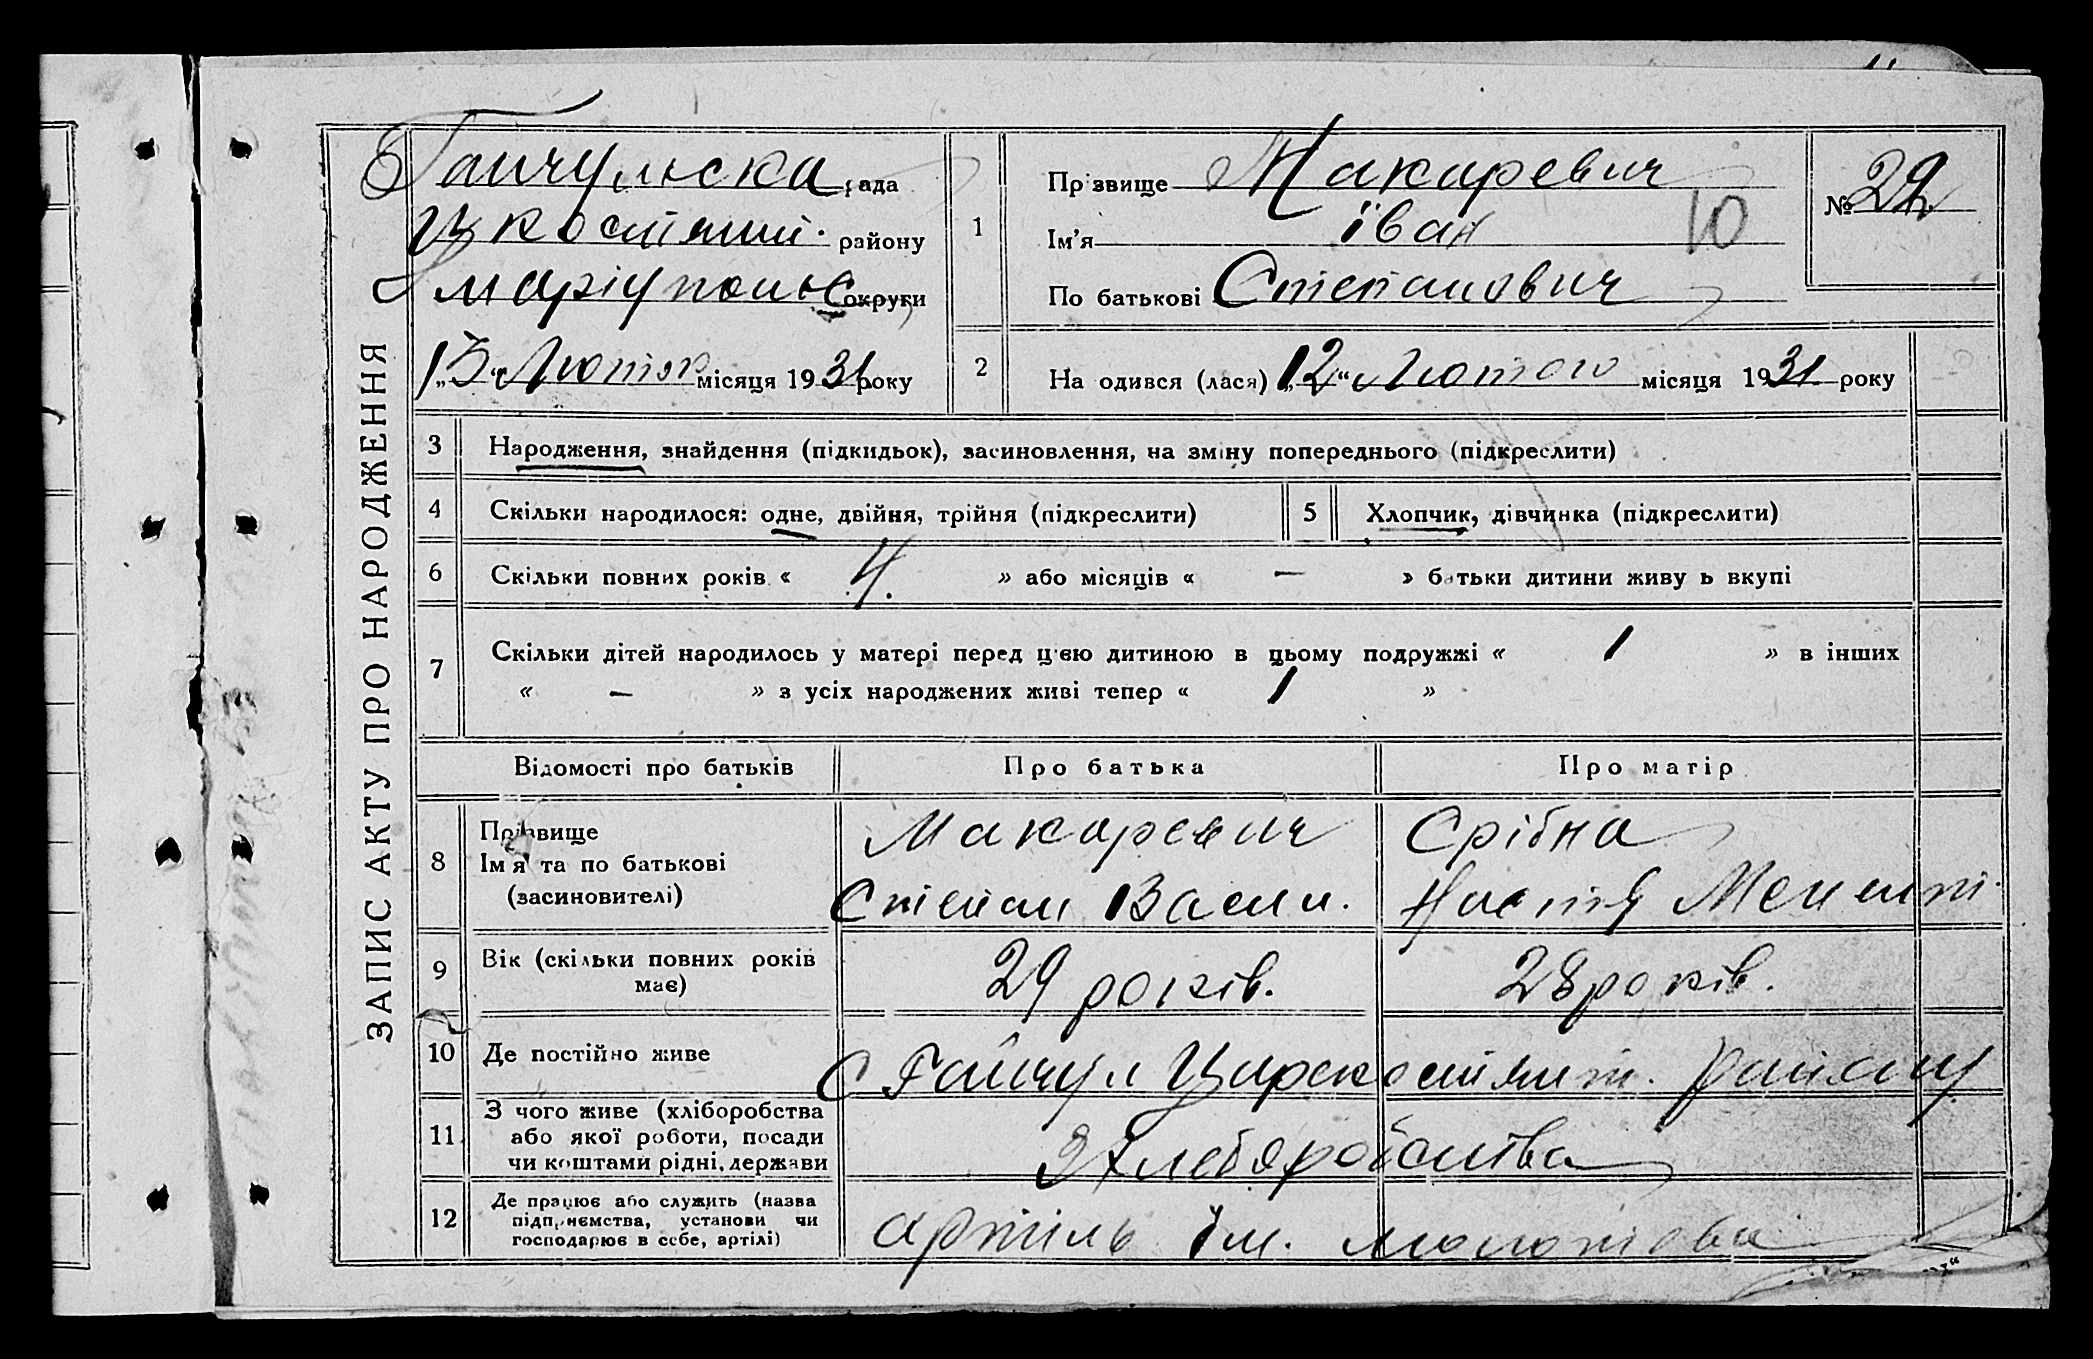 ЗАПИС АКТУ ПРО НАРОДЖЕННЯ
Гайчульска рада
Цкостянт. району
Маріупольс округи
"13" Лютого місяця 1931 року
1
Прізвище Макаревич
Ім'я Їван 10
По батькові Степанович
№ 29
2 На одився (лася) "12" Лютого місяця 1931 року
3 Народження, знайдення (підкидьок), засиновлення, на зміну попереднього (підкреслити)
4 Скільки народилося: одне, двійня, трійня (підкреслити)
5 Хлопчик, дівчинка (підкреслити)
6 Скільки повних років « 4. » або місяців « — » батьки дитини живу ь вкупі
7 Скільки дітей народилось у матері перед цією дитиною в цьому подружжі « 1 » в інших
« — » з усіх народжених живі тепер « 1 »
Відомості про батьків Про батька Про матір
8 Прізвище
Імя та по батькові
(засиновителі)
Макаревич
Степан Васил.
Срібна
Настя Мент.
9 Вік (скільки повних років
має)
29 років.
28 років.
10 Де постійно живе
С Гайчул Царекостянт. району
11 З чого живе (хліборобства
або якої роботи, посади
чи коштами рідні, держави
Хлеборобства
12 Де працює або служить (назва
підприємства, установи чи
господарює в себе, артілі)
артіль їм. Молотова